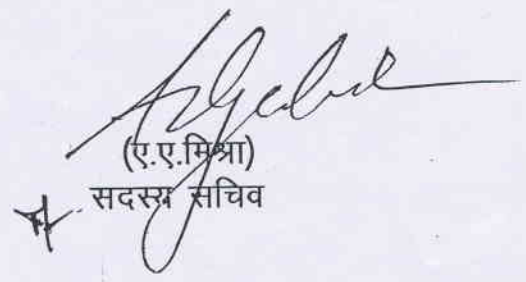 (ए.ए.मिश्रा)
सदस्य सचिव